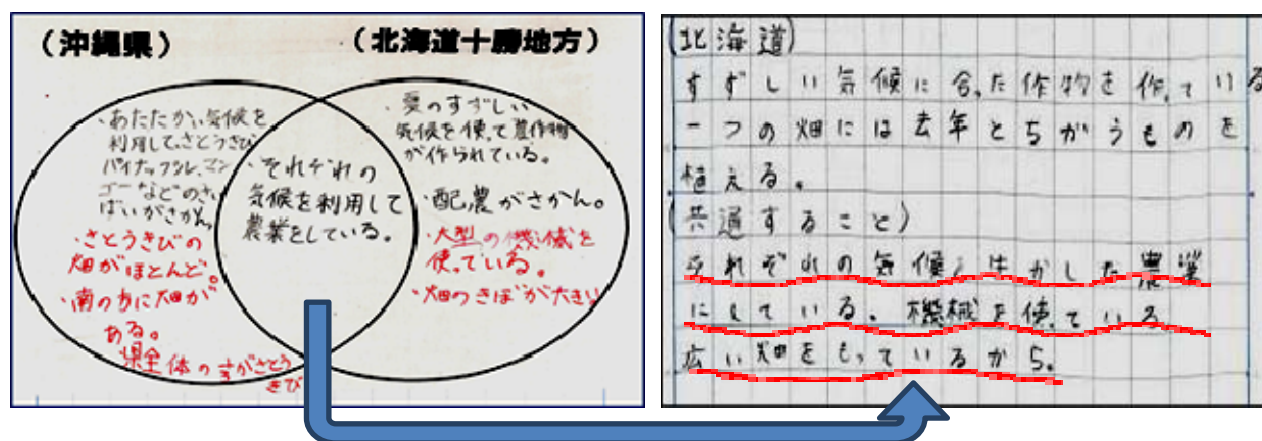 (沖縄県)
(北海道十勝地方)
・あたたかい気候を
利用して、さとうきび
パイナップル、マン
ゴーなどのさい
ばいがさかん。
・さとうきびの
畑がほとんど。
・南の方に畑が
ある。
県全体の すがさとう
きび
・それぞれの
気候を利用して
農業をしている。
・夏のすずしい
気候を使って農作物
が作られている。
・配農がさかん。
・大型の機械を
使っている。
・畑のきぼが大きい
(北海道)
すずしい気候に合った作物を作っている
一つの畑には去年とちがうものを
植える。
(共通すること)
それぞれの気候 生かした農業
にしている。機械を使っている
広い畑をもっているから。